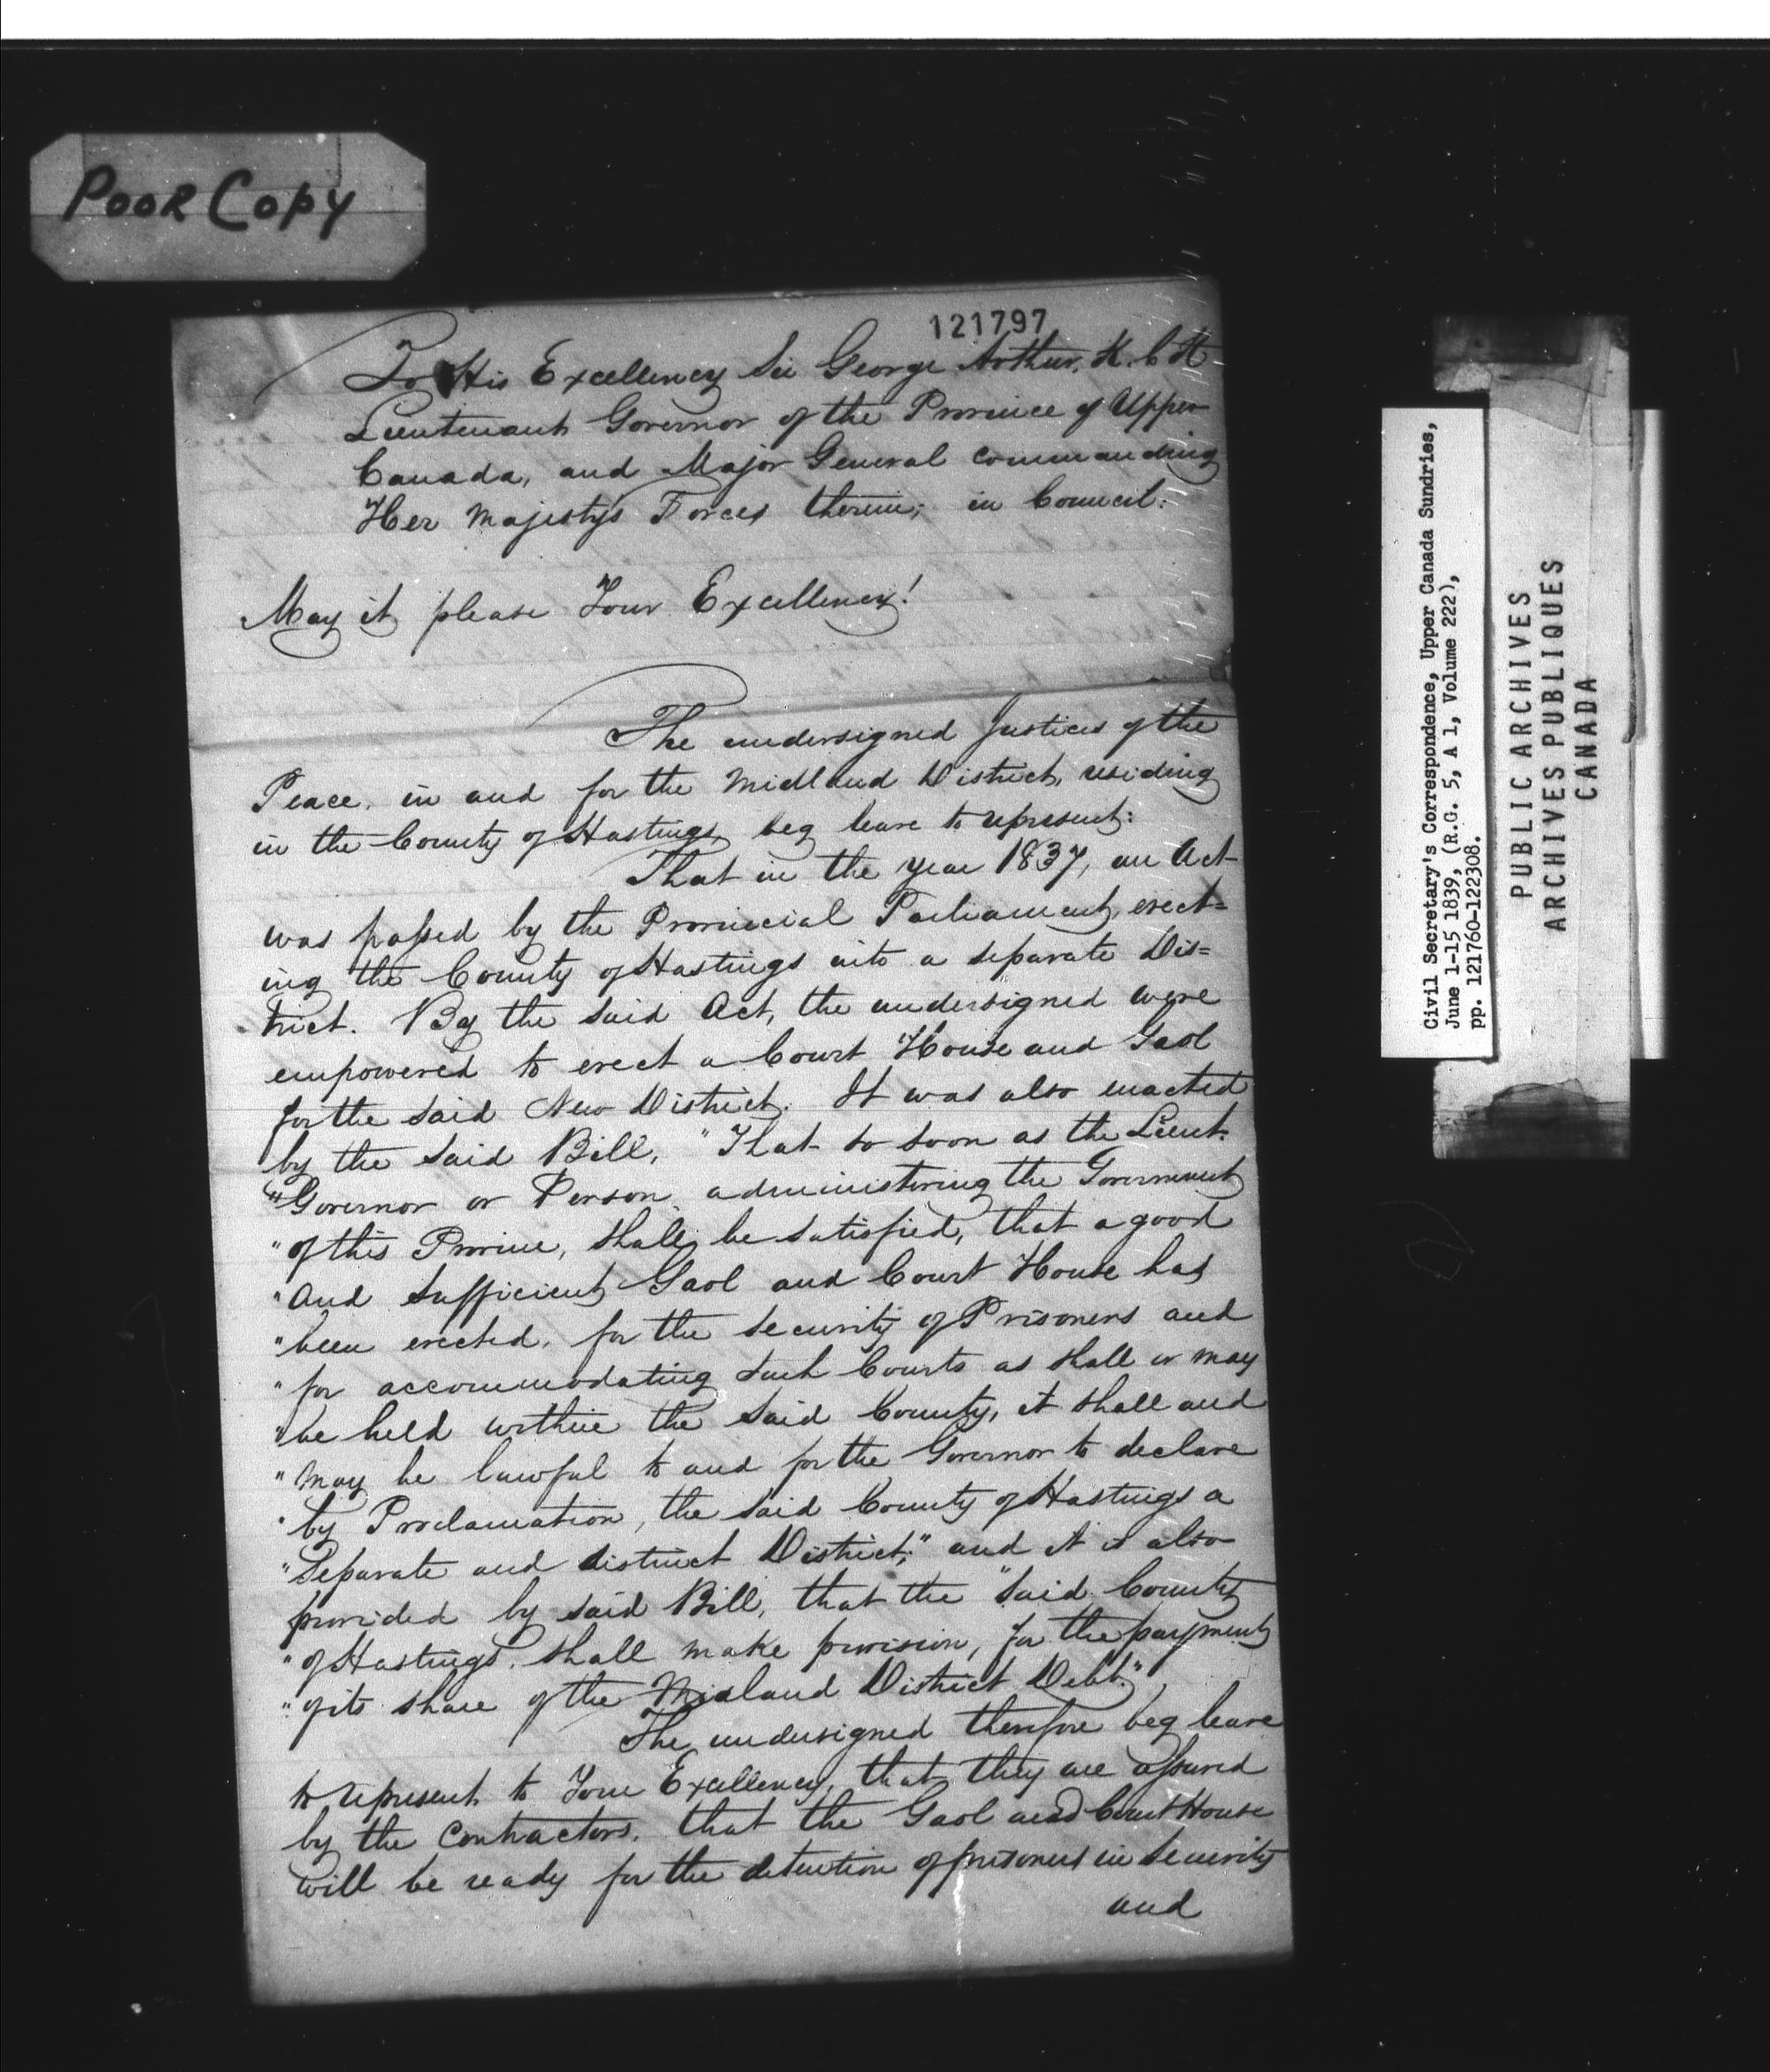 POOR COPY
121797
To His Excellency Sir George Arthur, K. C. H
Lieutenant Governor of the Province of Upper
Canada, and Major General commanding
Her Majestys Forces therein; in Council:
May it please Your Excellency!
The undersigned Justices of the
Peace, in and for the Midland District, residing
in the County of Hastings beg leave to represent:
That in the year 1837, an Act
was passed by the Provincial Parliament, erect=
ing the County of Hastings into a separate Dis=
trict. By the said Act, the undersigned were
empowered to erect a Court House and Gaol
for the said New District. It was also enacted
by the said Bill, "That so soon as the Lieut.
"Governor or Person administering the Government
"of this Province, shall be satisfied, that a good
"and sufficient Gaol and Court House has
"been erected, for the security of Prisoners and
"for accommodating such Courts as shall or may
"be held within the said County, it shall and
"may be lawful to and for the Governor to declare
"by Proclamation, the said County of Hastings a
"Separate and distinct District;" and it is also
provided by said Bill, that the "said County
"of Hastings, shall make provision, for the payment
"of its share of the Midland District Debt."
The undersigned therefore beg leave
to represent to Your Excellency, that they are assured
by the Contractors, that the Gaol and Court House
will be ready for the detention of prisoners in security
and
Civil Secretary's Correspondence, Upper Canada Sundries,
June 1-15 1839, (R.G. 5, A 1, Volume 222),
pp. 121760-122308.
PUBLIC ARCHIVES
ARCHIVES PUBLIQUES
CANADA